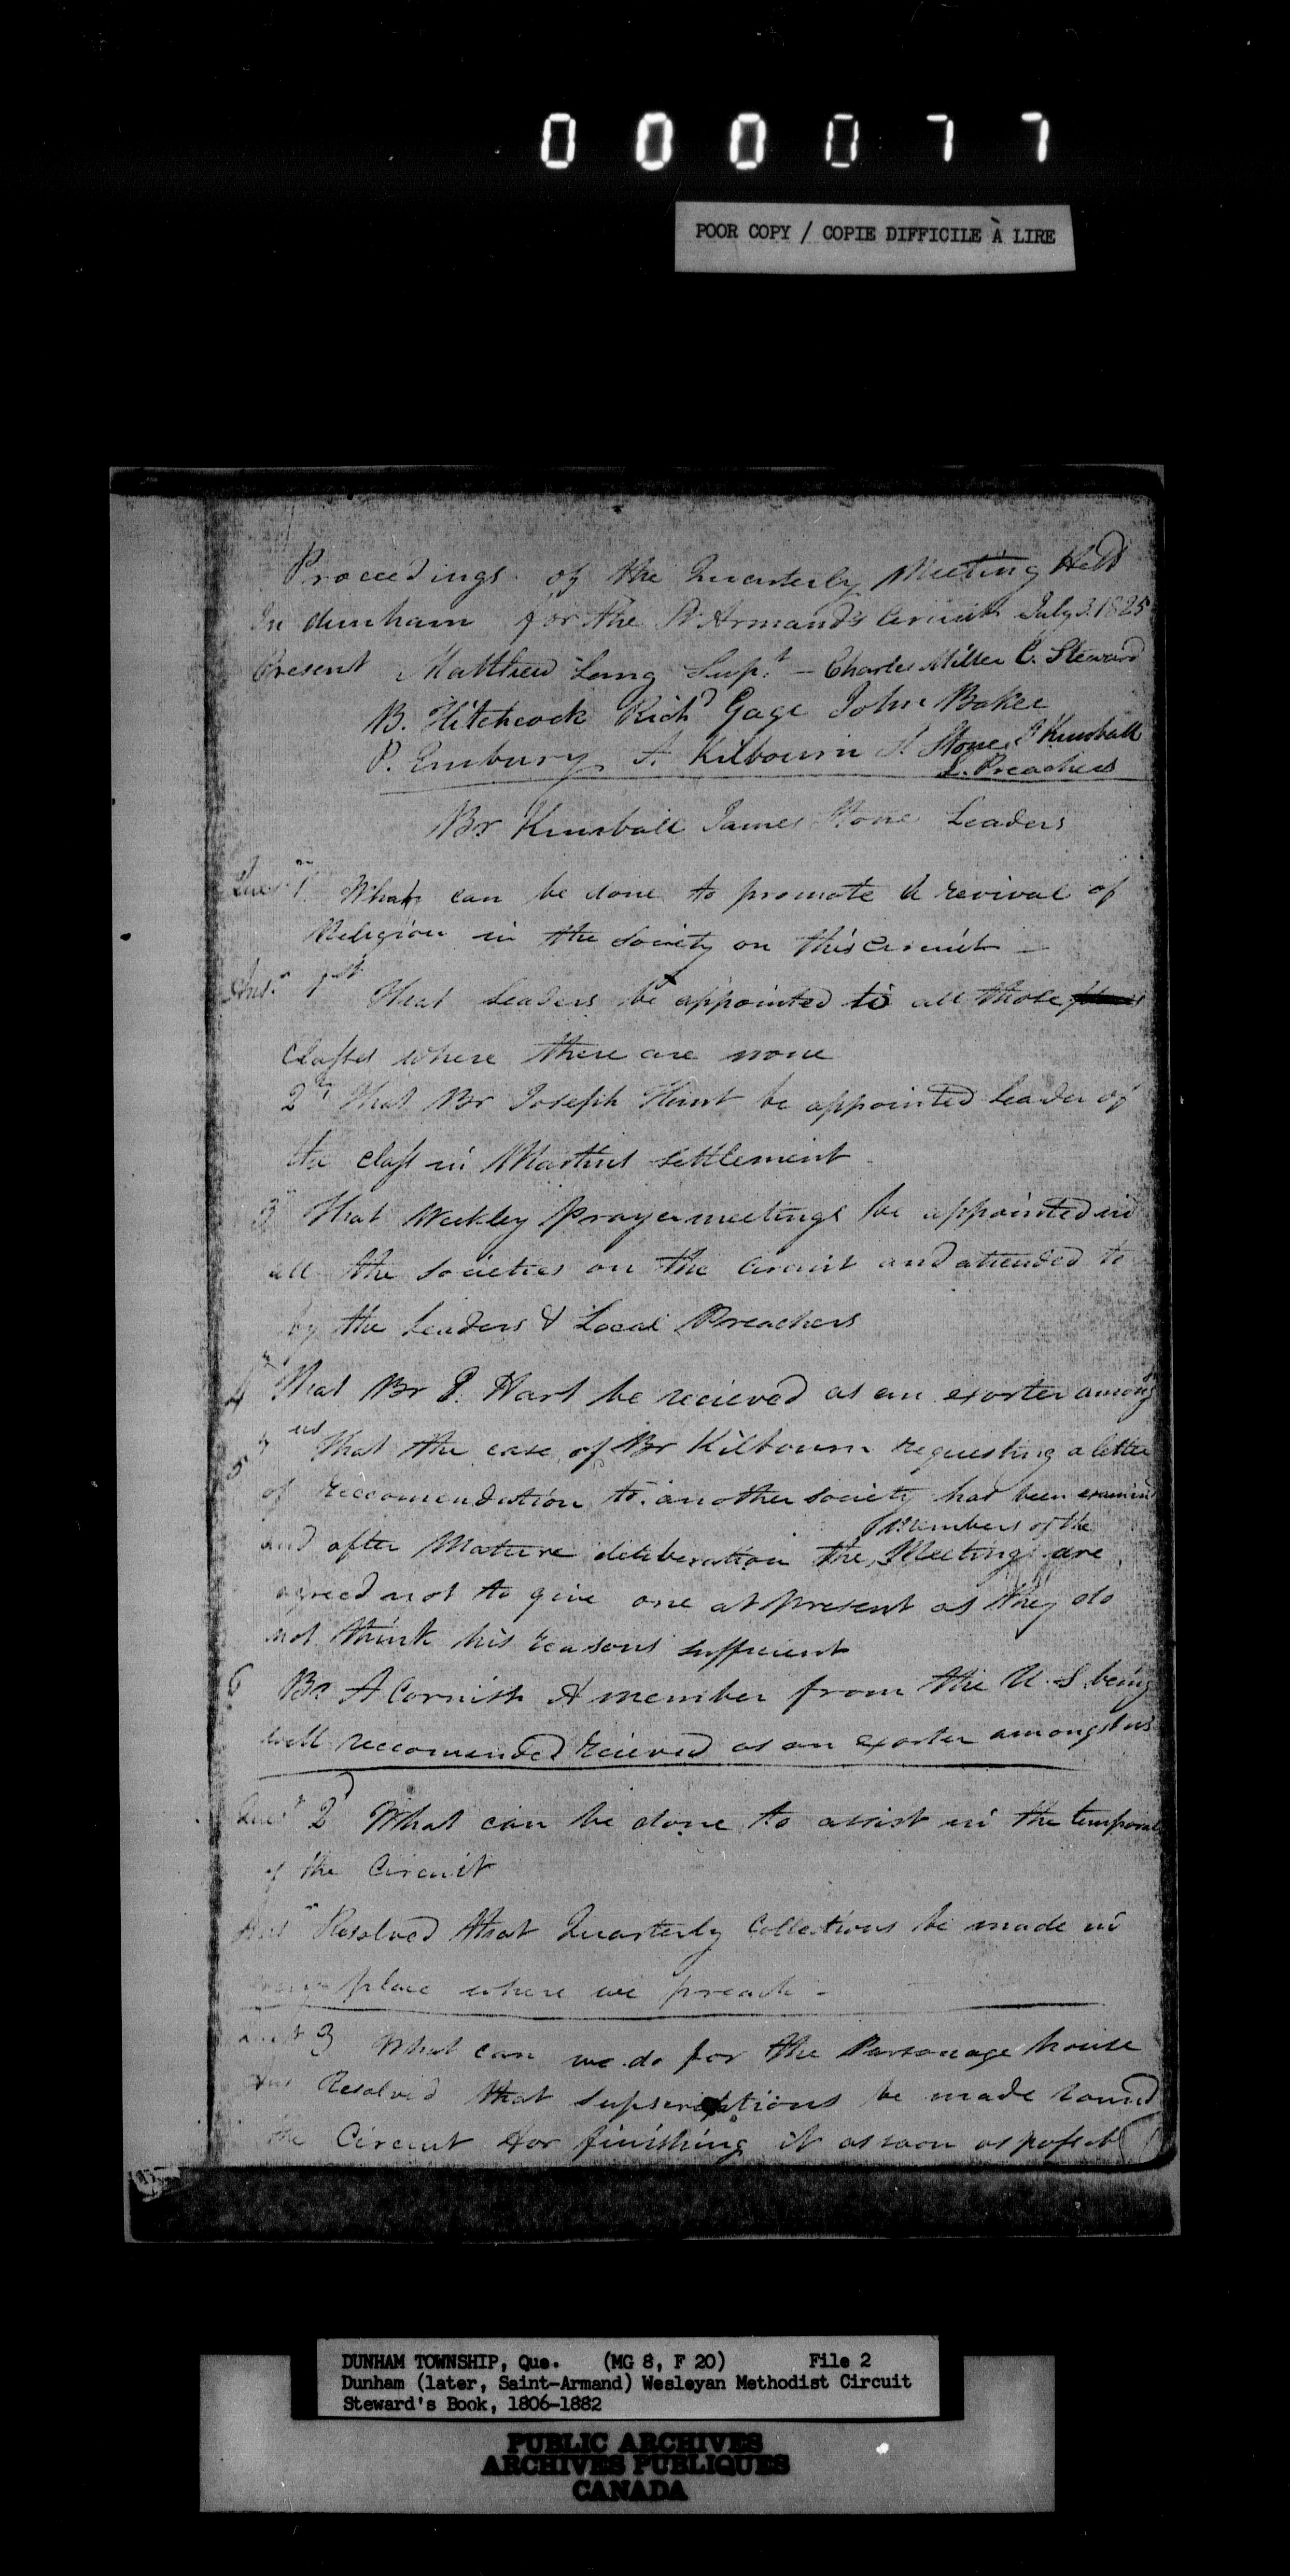 000077
POOR COPY / COPIE DIFFICILE À LIRE
Proceedings of the Quarterly Meeting Held
In dunham for the St Armands Circuit July 1825
Present Matthew Lang Supt. — Charles Miller C. Steward
B. Hitchcock Richd Gage John Baker
P. Embury A. Kilbourn Stone Kimball
L. Preachers
Br Kimball James Stone Leaders
Quesn 1 What can be done to promote A revival of
Religion in the Society on this Circuit —
Ansr 1st That Leaders be appointed to all those
Classes where there are none
2d That Br Joseph Hunt be appointed leader of
the class in Martins settlement
3 That Weekley prayermeetings be appointed in
all the societies on the Circuit and attended to
by the Leaders & Local Preachers
4 That Br P. Hart be recieved as an exorter among
us
5 That the case of Br Kilbourn requesting a letter
of reccomendation to another society had been examind
members of the
and after Mature deliberation the Meeting are
agreed not to give one at present as they do
not think his reasons sufficient
6 Br A Cornish A member from the U.S. being
well reccomended recieved as an exorter amongst us
Quesn 2d What can be done to assist in the temporal
of the Circuit
Ansr Resolved that Quarterly Collections be made in
every place where we preach -
Quest 3 What can we do for the Parsonage house
Ans Resolved that supscriptions be made round
the Circuit for finishing it as soon as possebl
DUNHAM TOWNSHIP, Que. (MG 8, F 20) File 2
Dunham (later, Saint-Armand) Wesleyan Methodist Circuit
Steward's Book, 1806-1882
PUBLIC ARCHIVES
ARCHIVES PUBLIQUES
CANADA